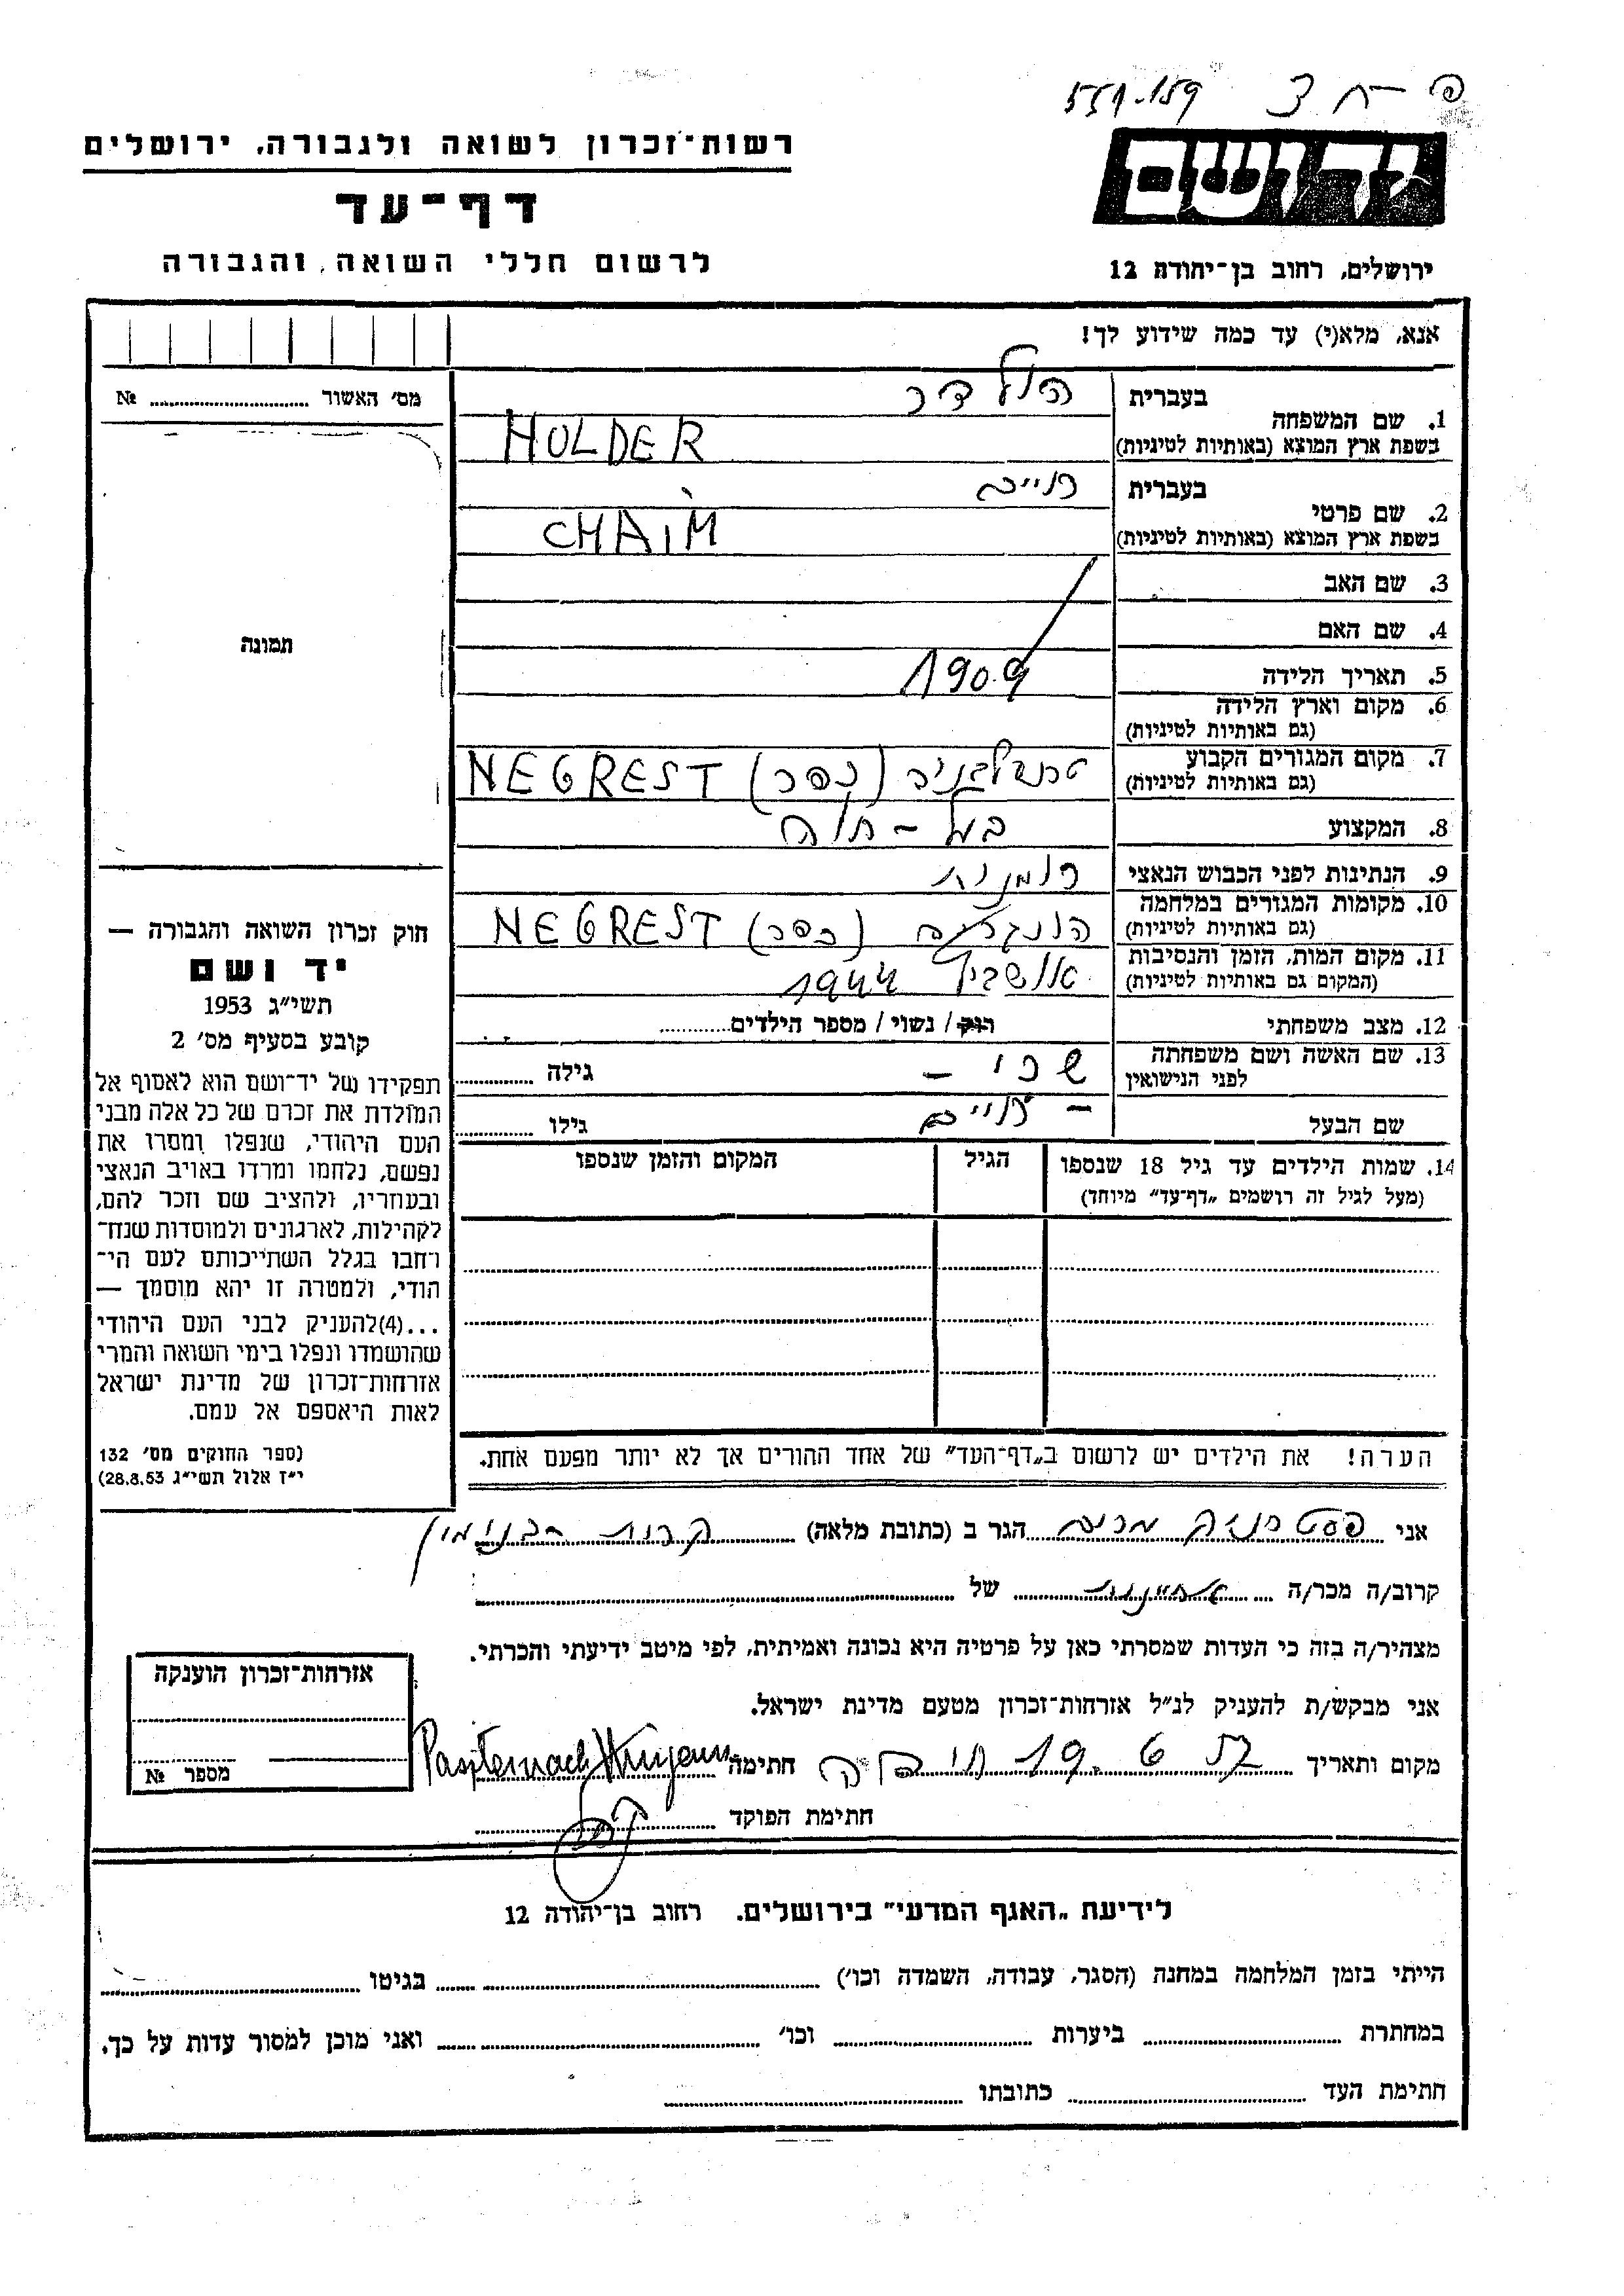 551.159 פ-ח 3
יד ושם
ירושלים, רחוב בן־יהודה 12
רשות־זכרון לשואה ולגבורה, ירושלים
דף־עד
לרשום חללי השואה והגבורה
אנא, מלא(י) עד כמה שידוע לך!
מס׳ האשור № ........
תמונה
1. שם המשפחה
בעברית הולדר
בשפת ארץ המוצא (באותיות לטיניות) HOLDER
2. שם פרטי
בעברית חיים
בשפת ארץ המוצא (באותיות לטיניות) CHAIM
3. שם האב
4. שם האם
5. תאריך הלידה 1909
6. מקום וארץ הלידה
(גם באותיות לטיניות)
7. מקום המגורים הקבוע טרנסלבניה (כפר) NEGREST
(גם באותיות לטיניות)
8. המקצוע בעל-
9. הנתינות לפני הכבוש הנאצי רומנית
10. מקומות המגורים במלחמה הונגריה (כפר) NEGREST
(גם באותיות לטיניות)
11. מקום המות, הזמן והנסיבות אושביץ 1944
(המקום גם באותיות לטיניות)
12. מצב משפחתי רוק / נשוי / מספר הילדים........
13. שם האשה ושם משפחתה שרי -
לפני הנישואין
גילה ........
שם הבעל - חיים
גילו ........
14. שמות הילדים עד גיל 18 שנספו
(מעל לגיל זה רושמים „דף־עד״ מיוחד)
הגיל
המקום והזמן שנספו
הערה! את הילדים יש לרשום ב„דף־העד״ של אחד ההורים אך לא יותר מפעם אחת.
חוק זכרון השואה והגבורה —
יד ושם
תשי״ג 1953
קובע בסעיף מס׳ 2
תפקידו של יד־ושם הוא לאסוף אל
המולדת את זכרם של כל אלה מבני
העם היהודי, שנפלו ומסרו את
נפשם, נלחמו ומרדו באויב הנאצי
ובעוזריו, ולהציב שם וזכר להם,
לקהילות, לארגונים ולמוסדות שנח־
רחבו בגלל השתייכותם לעם הי־
הודי, ולמטרה זו יהא מוסמך —
...(4)להעניק לבני העם היהודי
שהושמדו ונפלו בימי השואה והמרי
אזרחות־זכרון של מדינת ישראל
לאות היאספם אל עמם.
(ספר החוקים מס׳ 132
י״ז אלול תשי״ג 28.8.53)
אני פסטרנק מרים הגר ב (כתובת מלאה) קרית בנימין
קרוב/ה מכר/ה ........ של ........
מצהיר/ה בזה כי העדות שמסרתי כאן על פרטיה היא נכונה ואמיתית, לפי מיטב ידיעתי והכרתי.
אני מבקש/ת להעניק לנ״ל אזרחות־זכרון מטעם מדינת ישראל.
מקום ותאריך 19.6.57 חיפה חתימה Pasternach
חתימת הפוקד ........
אזרחות־זכרון הוענקה
מספר №
לידיעת „האגף המדעי״ בירושלים. רחוב בן־יהודה 12
הייתי בזמן המלחמה במחנה (הסגר, עבודה, השמדה וכו׳) ........ בגיטו ........
במחתרת ........ ביערות ........ וכו׳ ........ ואני מוכן למסור עדות על כך.
חתימת העד ........ כתובתו ........